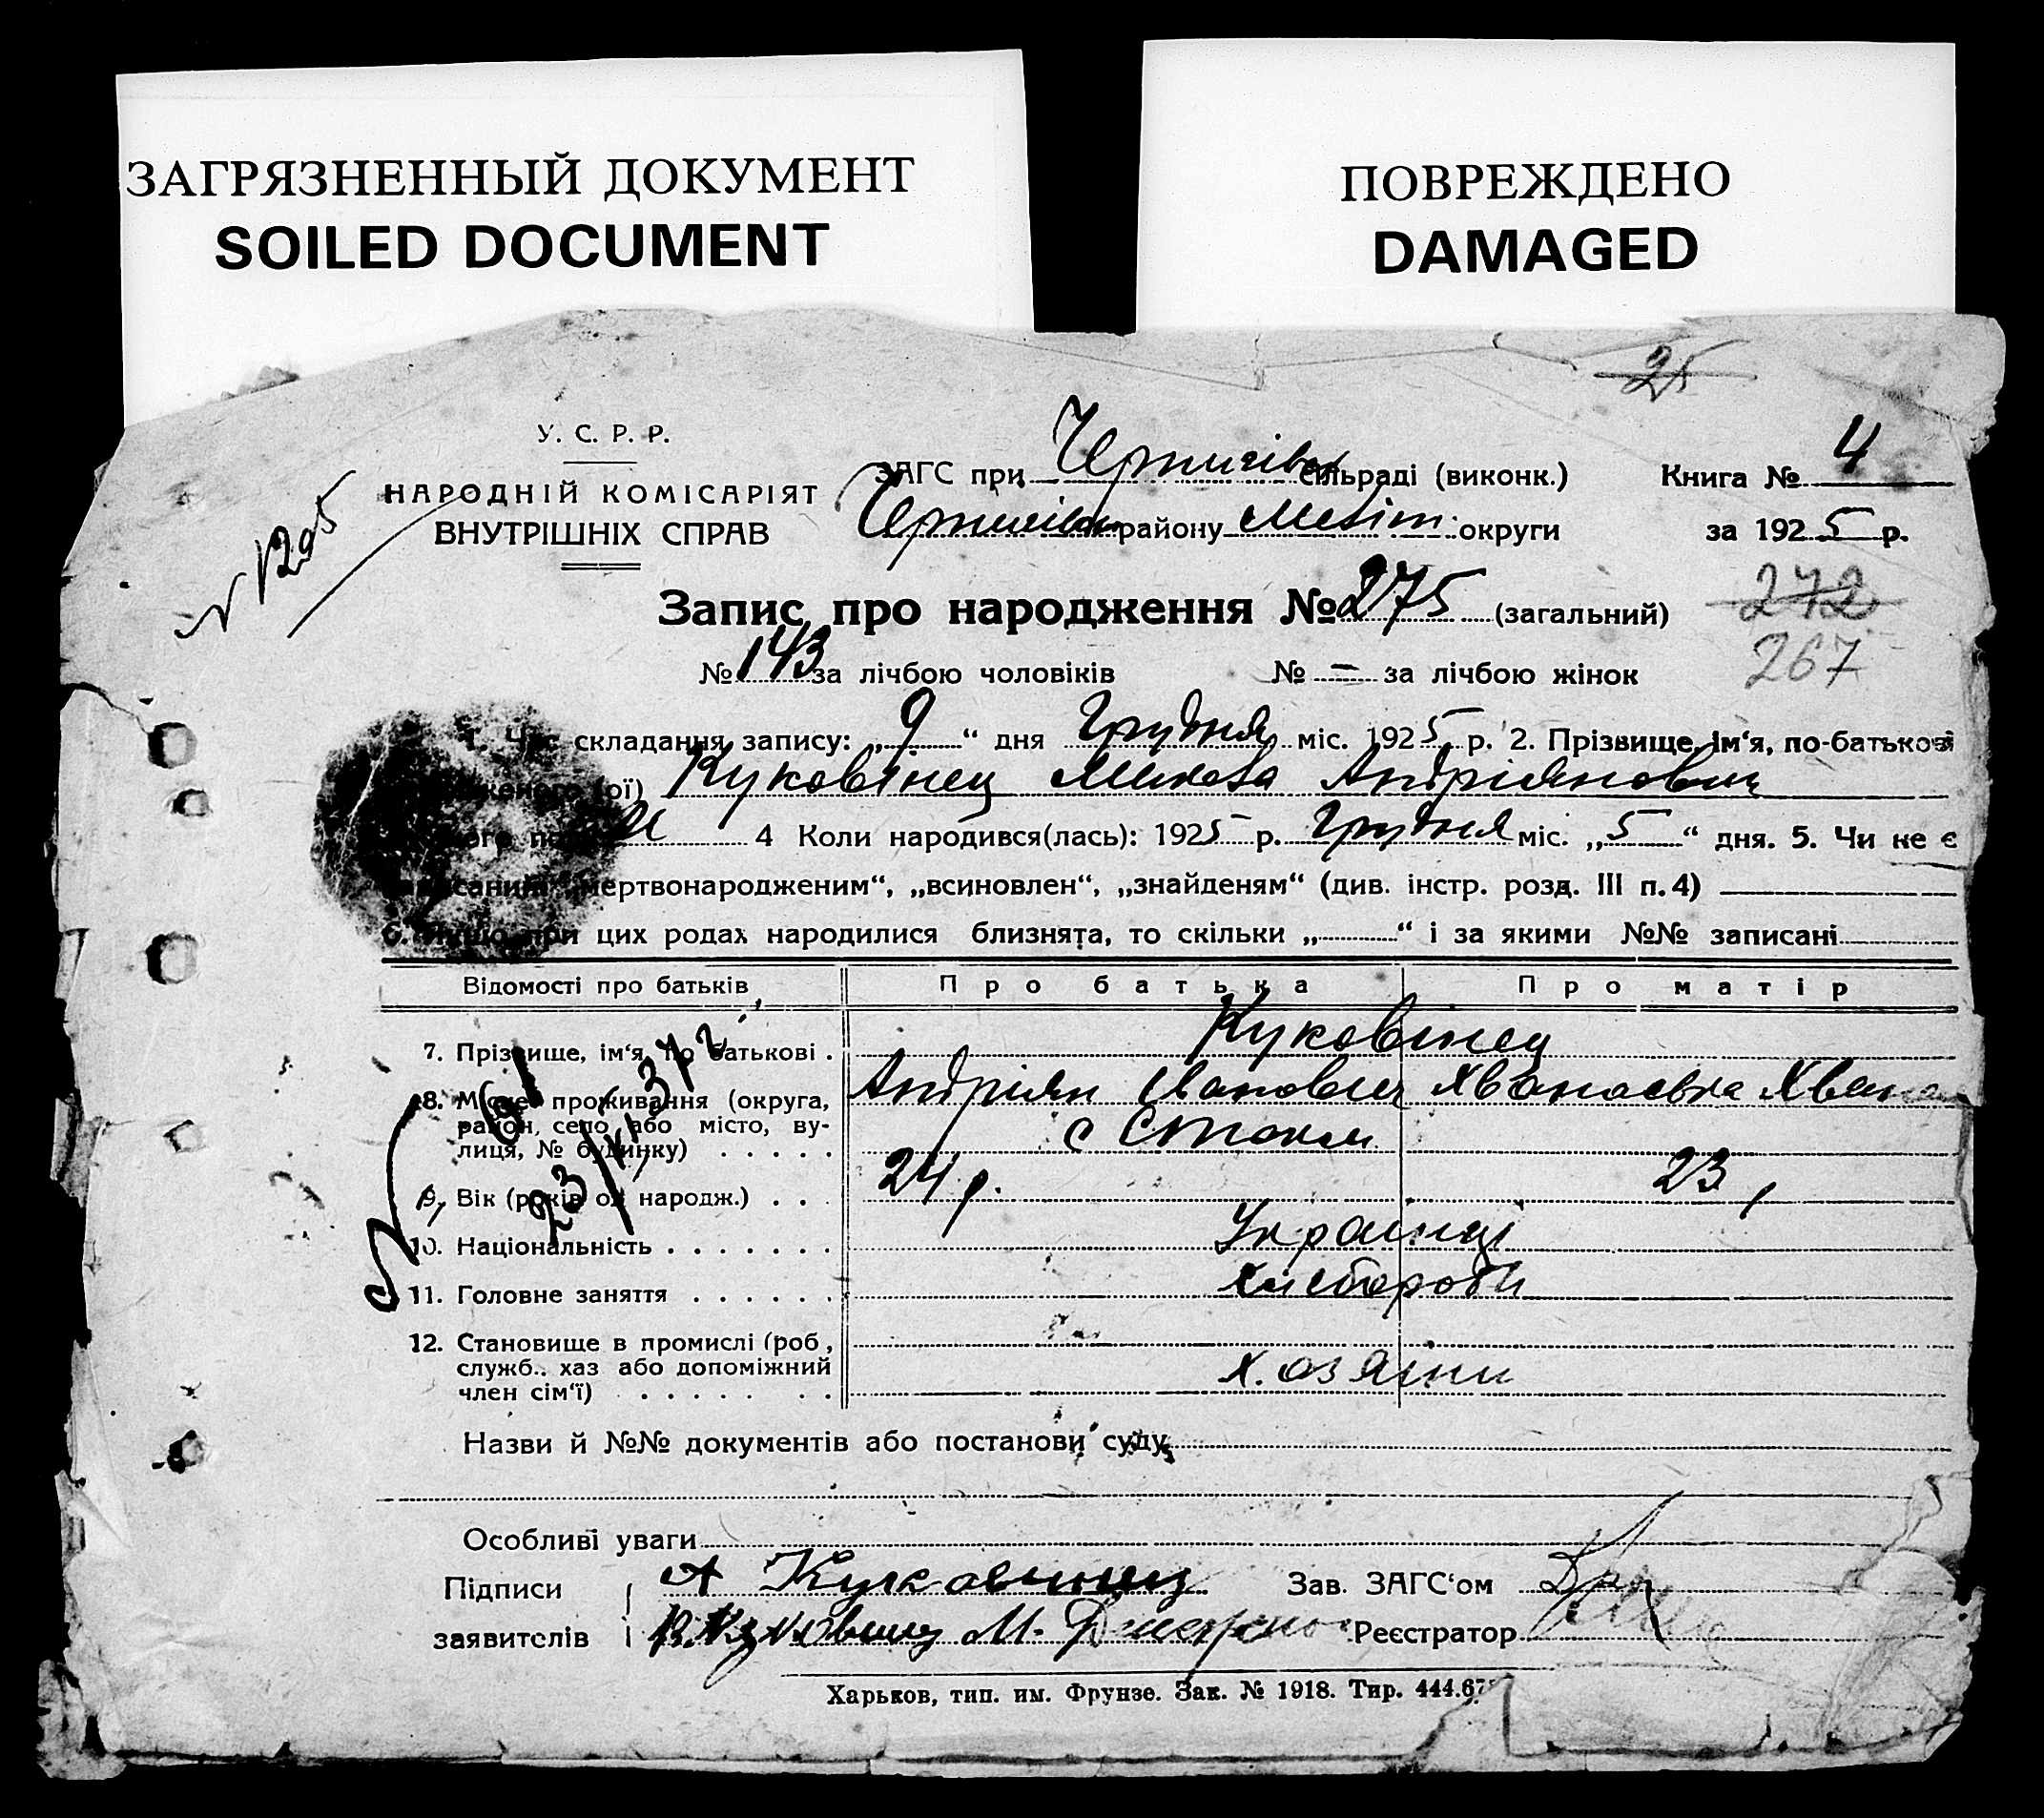 ЗАГРЯЗНЕННЫЙ ДОКУМЕНТ
SOILED DOCUMENT
ПОВРЕЖДЕНО
DAMAGED
25
У. С. Р. Р.
НАРОДНІЙ КОМІСАРІЯТ
ВНУТРІШНІХ СПРАВ
N 1205
ЗАГС при сільраді (виконк.)
Книга № 4
району Меліт. округи
за 1925 р.
Запис про народження № 275 (загальний)
272
№ 143 за лічбою чоловіків № – за лічбою жінок
267
1. Час складання запису: „9“ дня Грудня міс. 1925 р. 2. Прізвище, ім‘я, по-батькові
(ої) Куковінец Микола Андріянович
М 4 Коли народився(лась): 1925 р. Грудня міс. „5“ дня. 5. Чи не є
мертвонародженим“, „всиновлен“, „знайденям“ (див. інстр. розд. III п. 4)
6. Якщо при цих родах народилися близнята, то скільки „ “ і за якими №№ записані
Відомості про батьків Про батька Про матір
7. Прізвище, ім‘я, по батькові . Куковінец
8. Місце проживання (округа, Андріян Іванович
район, село або місто, ву-
лиця, № будинку) . . . . .
9. Вік (років од народж.) . . . 24 р. 23
10. Національність . . . . . . . Українці
11. Головне заняття . . . . . . Хлібороби
12. Становище в промислі (роб,
служб.. хаз або допоміжний х.озяини
член сім‘ї) . . . . . . .
Назви й №№ документів або постанови суду
Особливі уваги
Підписи А Куковинец Зав. ЗАГС‘ом
заявителів Реєстратор
Харьков, тип. им. Фрунзе. Зак. № 1918. Тир. 444.67